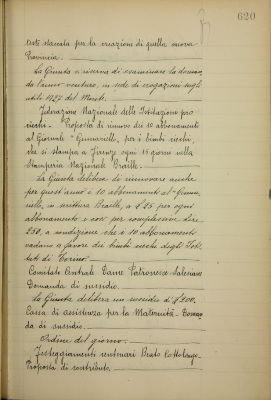 620
stanziata per la creazione di quella nuova
Provincia.
La Giunta si riserva di esaminare la doman
da l'anno venturo, in sede di erogazioni sugli
utili 1927 del Monte.
Federazione Nazionale delle Istituzione pro
ciechi - Proposta di rinnovo dei 10 abbonamenti
al Giornale "Gennariello" per i bimbi ciechi
che si stampa a Firenze ogni 15 giorni nella
Stamperia Nazionale Braille.
La Giunta delibera di rinnovare anche
per quest'anno i 10 abbonamenti al "Genna-
riello, in scrittura Braille, a £ 25 per ogni
abbonamento e così per complessive Lire
250, a condizione che i 10 abbonamenti
vadano a favore dei bimbi ciechi degli Isti-
tuti di Torino.
Comitato Centrale Dame Patronesse Salesiane
Domanda di sussidio.
La Giunta delibera un sussidio di £ 200.
Cassa di assistenza per la Maternità - Doman
da di sussidio.
Ordine del giorno.
Festeggiamenti centenari Beato Cottolengo -
Proposta di contributo.